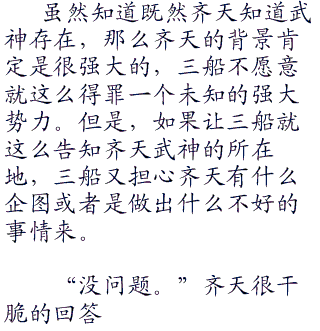 虽然知道既然齐天知道武
神存在，那么齐天的背景肯
定是很强大的，三船不愿意
就这么得罪一个未知的强大
势力。但是，如果让三船就
这么告知齐天武神的所在
地，三船又担心齐天有什么
企图或者是做出什么不好的
事情来。
“没问题。”齐天很干
脆的回答